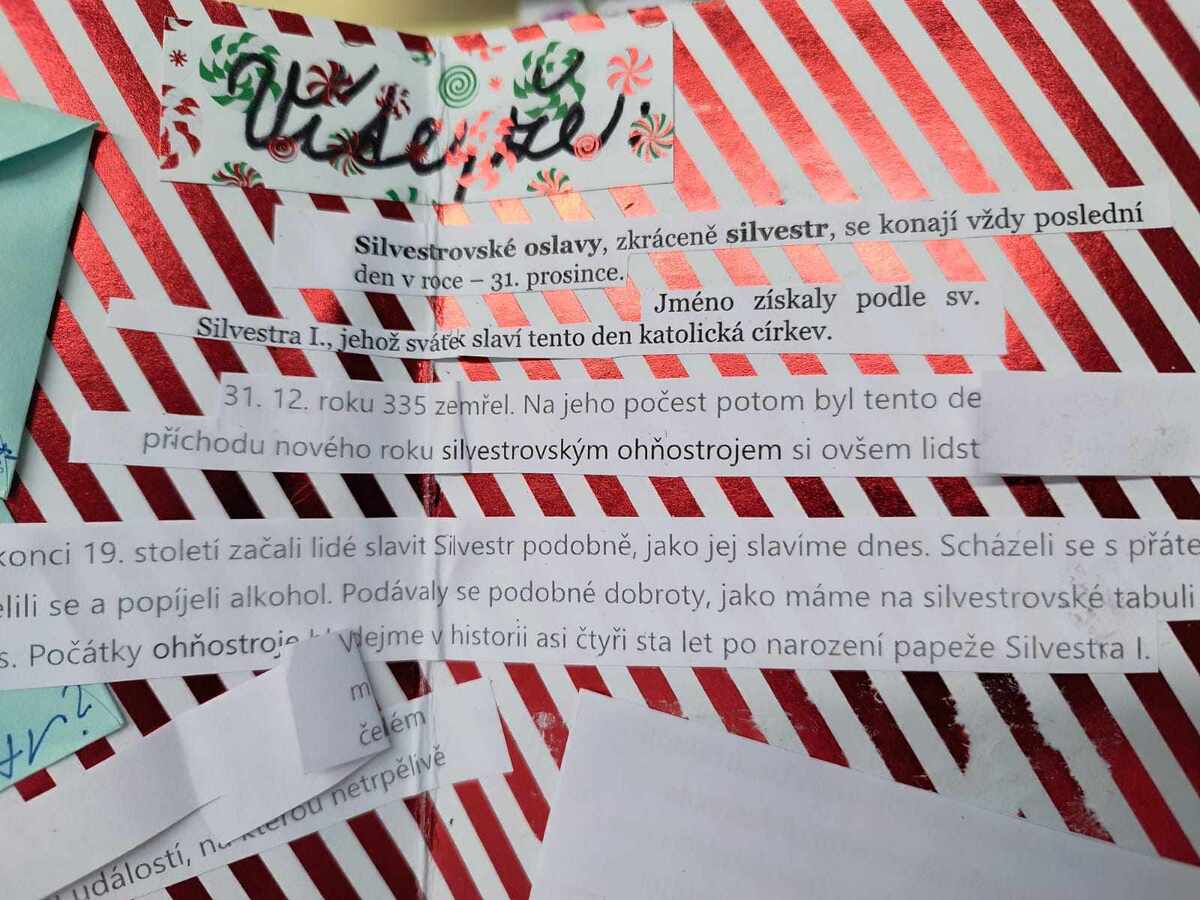 Víte, že:
Silvestrovské oslavy, zkráceně silvestr, se konají vždy poslední
den v roce – 31. prosince.
Jméno získaly podle sv.
Silvestra I., jehož svátek slaví tento den katolická církev.
31. 12. roku 335 zemřel. Na jeho počest potom byl tento de
příchodu nového roku silvestrovským ohňostrojem si ovšem lidst
konci 19. století začali lidé slavit Silvestr podobně, jako jej slavíme dnes. Scházeli se s přáte
elili se a popíjeli alkohol. Podávaly se podobné dobroty, jako máme na silvestrovské tabuli
s. Počátky ohňostroje dejme v historii asi čtyři sta let po narození papeže Silvestra I.
m
čelém
událostí, na kterou netrpělivě